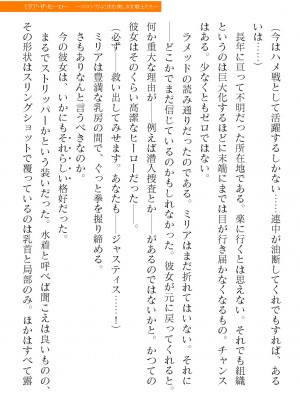 ミリア・ザ・ヒーロー
（今はハメ戦として活躍するしかない……連中が油断してくれでもすれば、ある
いは――）
長年に亘って不明だった所在地である。楽に行くとは思えない。それでも組織
というのは巨大化するほどに末端にまでは目が行き届かなくなるもの。チャンス
はある。少なくともゼロではない。
ラメッドの読み通りだったのである。ミリアはまだ折れてはいない。それに
――どこかでまだ信じているのかもしれなかった。彼女が元に戻ってくれると。
何か重大な理由が――例えば潜入捜査とか――があるのではないかと。かつての
彼女はそのくらい高潔なヒーローだった――。
（必ず――救い出してみせます。あなたも――ジャスティス……！）
ミリアは豊満な乳房の間で、ぐっと拳を握り締める。
さもありなんと言うべきなのか。
今の彼女は、いかにもそれらしい格好だった。
まるでストリッパーかという装いだった。水着と呼べば聞こえは良いものの、
その形状はスリングショットで覆っているのは乳首と局部のみ。ほかはすべて露